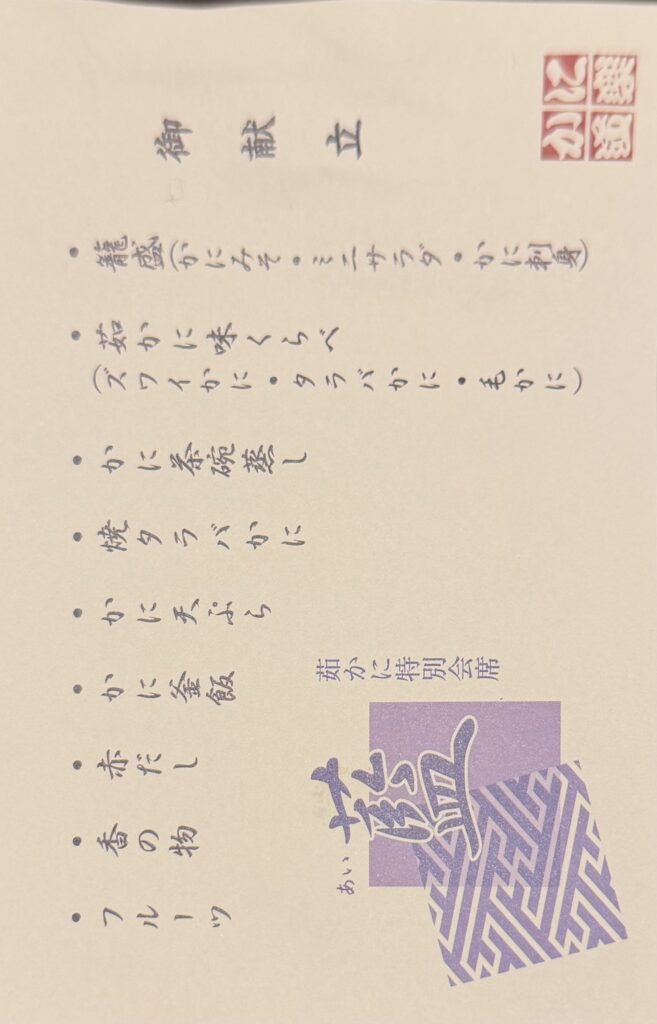 御献立
・籠盛(かにみそ・ミニサラダ・かに刺身)
・茹かに味くらべ
(ズワイかに・タラバかに・毛かに)
・かに茶碗蒸し
・焼タラバかに
・かに天ぷら
・かに釜飯
・赤だし
・香の物
・フルーツ
茹かに特別会席
藍
あい
かに